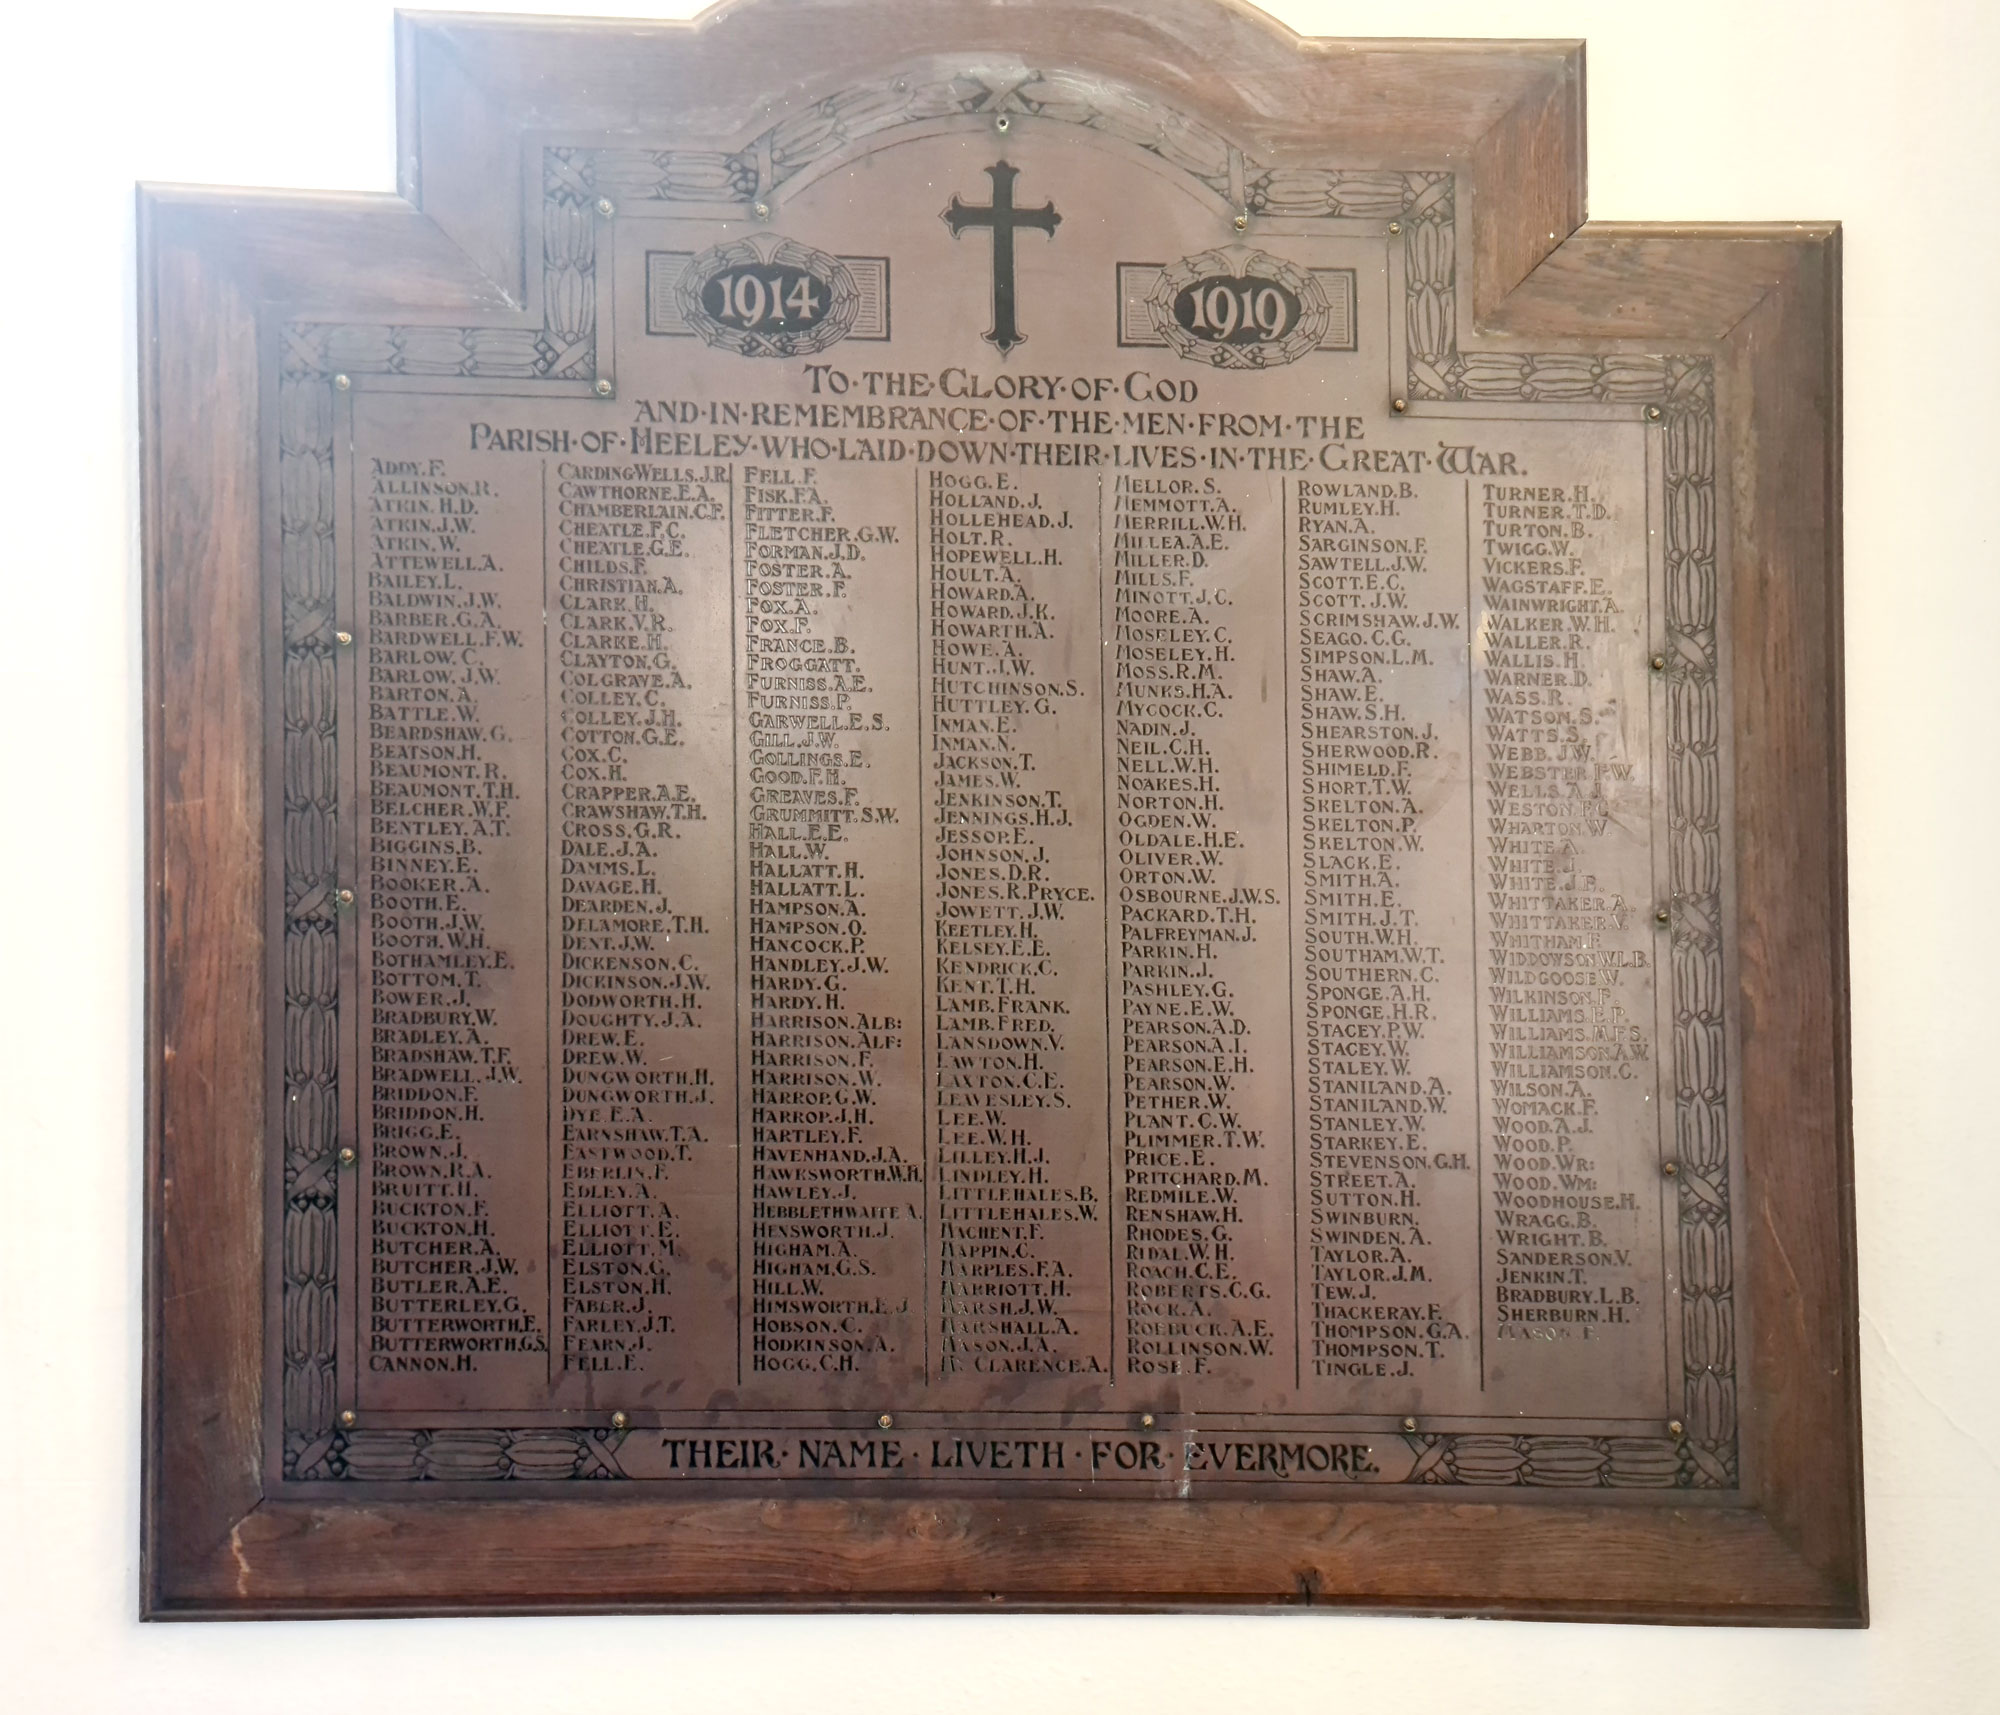 1914
1919
TO·THE·GLORY·OF·GOD
AND·IN·REMEMBRANCE·OF·THE·MEN·FROM·THE
PARISH·OF·HEELEY·WHO·LAID·DOWN·THEIR·LIVES·IN·THE·GREAT·WAR.
ADDY.F.
ALLINSON.R.
ATKIN.H.D.
ATKIN.J.W.
ATKIN.W.
ATTEWELL.A.
BAILEY.L.
BALDWIN.J.W.
BARBER.G.A.
BARDWELL.F.W.
BARLOW.C.
BARLOW.J.W.
BARTON.A.
BATTLE.W.
BEARDSHAW.G.
BEATSON.H.
BEAUMONT.R.
BEAUMONT.T.H.
BELCHER.W.F.
BENTLEY.A.T.
BIGGINS.B.
BINNEY.E.
BOOKER.A.
BOOTH.E.
BOOTH.J.W.
BOOTH.W.H.
BOTHAMLEY.E.
BOTTOM.T.
BOWER.J.
BRADBURY.W.
BRADLEY.A.
BRADSHAW.T.F.
BRADWELL.J.W.
BRIDDON.F.
BRIDDON.H.
BRIGG.E.
BROWN.J.
BROWN.R.A.
BRUITT.H.
BUCKTON.F.
BUCKTON.H.
BUTCHER.A.
BUTCHER.J.W.
BUTLER.A.E.
BUTTERLEY.G.
BUTTERWORTH.E.
BUTTERWORTH.G.S.
CANNON.H.
CARDING-WELLS.J.R.
CAWTHORNE.E.A.
CHAMBERLAIN.C.F.
CHEATLE.F.C.
CHEATLE.G.E.
CHILDS.F.
CHRISTIAN.A.
CLARK.H.
CLARK.V.R.
CLARKE.H.
CLAYTON.G.
COLGRAVE.A.
COLLEY.C.
COLLEY.J.H.
COTTON.G.E.
COX.C.
COX.H.
CRAPPER.A.E.
CRAWSHAW.T.H.
CROSS.G.R.
DALE.J.A.
DAMMS.L.
DAVAGE.H.
DEARDEN.J.
DELAMORE.T.H.
DENT.J.W.
DICKENSON.C.
DICKINSON.J.W.
DODWORTH.H.
DOUGHTY.J.A.
DREW.E.
DREW.W.
DUNGWORTH.H.
DUNGWORTH.J.
DYE.E.A.
EARNSHAW.T.A.
EASTWOOD.T.
EBERLIN.F.
EDLEY.A.
ELLIOTT.A.
ELLIOTT.E.
ELLIOTT.M.
ELSTON.G.
ELSTON.H.
FABER.J.
FARLEY.J.T.
FEARN.J.
FELL.E.
FELL.F.
FISK.F.A.
FITTER.F.
FLETCHER.G.W.
FORMAN.J.D.
FOSTER.A.
FOSTER.F.
FOX.A.
FOX.F.
FRANCE.B.
FROGGATT.
FURNISS.A.E.
FURNISS.P.
GARWELL.E.S.
GILL.J.W.
GOLLINGS.E.
GOOD.F.H.
GREAVES.F.
GRUMMITT.S.W.
HALL.E.E.
HALL.W.
HALLATT.H.
HALLATT.L.
HAMPSON.A.
HAMPSON.O.
HANCOCK.P.
HANDLEY.J.W.
HARDY.G.
HARDY.H.
HARRISON.ALB:
HARRISON.ALF:
HARRISON.F.
HARRISON.W.
HARROP.G.W.
HARROP.J.H.
HARTLEY.F.
HAVENHAND.J.A.
HAWKSWORTH.W.H.
HAWLEY.J.
HEBBLETHWAITE.A.
HENSWORTH.J.
HIGHAM.A.
HIGHAM.G.S.
HILL.W.
HIMSWORTH.E.J.
HOBSON.C.
HODKINSON.A.
HOGG.C.H.
HOGG.E.
HOLLAND.J.
HOLLEHEAD.J.
HOLT.R.
HOPEWELL.H.
HOULT.A.
HOWARD.A.
HOWARD.J.K.
HOWARTH.A.
HOWE.A.
HUNT.J.W.
HUTCHINSON.S.
HUTTLEY.G.
INMAN.E.
INMAN.N.
JACKSON.T.
JAMES.W.
JENKINSON.T.
JENNINGS.H.J.
JESSOP.E.
JOHNSON.J.
JONES.D.R.
JONES.R.PRYCE.
JOWETT.J.W.
KEETLEY.H.
KELSEY.E.E.
KENDRICK.C.
KENT.T.H.
LAMB.FRANK.
LAMB.FRED.
LANSDOWN.V.
LAWTON.H.
LAXTON.C.E.
LEAVESLEY.S.
LEE.W.
LEE.W.H.
LILLEY.H.J.
LINDLEY.H.
LITTLEHALES.B.
LITTLEHALES.W.
MACHENT.F.
MAPPIN.C.
MARPLES.F.A.
MARRIOTT.H.
MARSH.J.W.
MARSHALL.A.
MASON.J.A.
CLARENCE.A.
MELLOR.S.
MEMMOTT.A.
MERRILL.W.H.
MILLEA.A.E.
MILLER.D.
MILLS.F.
MINOTT.J.C.
MOORE.A.
MOSELEY.C.
MOSELEY.H.
MOSS.R.M.
MUNKS.H.A.
MYCOCK.C.
NADIN.J.
NEIL.C.H.
NELL.W.H.
NOAKES.H.
NORTON.H.
OGDEN.W.
OLDALE.H.E.
OLIVER.W.
ORTON.W.
OSBOURNE.J.W.S.
PACKARD.T.H.
PALFREYMAN.J.
PARKIN.H.
PARKIN.J.
PASHLEY.G.
PAYNE.E.W.
PEARSON.A.D.
PEARSON.A.I.
PEARSON.E.H.
PEARSON.W.
PETHER.W.
PLANT.C.W.
PLIMMER.T.W.
PRICE.E.
PRITCHARD.M.
REDMILE.W.
RENSHAW.H.
RHODES.G.
RIDAL.W.H.
ROACH.C.E.
ROBERTS.C.G.
ROCK.A.
ROEBUCK.A.E.
ROLLINSON.W.
ROSE.F.
ROWLAND.B.
RUMLEY.H.
RYAN.A.
SARGINSON.F.
SAWTELL.J.W.
SCOTT.E.C.
SCOTT.J.W.
SCRIMSHAW.J.W.
SEAGO.C.G.
SIMPSON.L.M.
SHAW.A.
SHAW.E.
SHAW.S.H.
SHEARSTON.J.
SHERWOOD.R.
SHIMELD.F.
SHORT.T.W.
SKELTON.A.
SKELTON.P.
SKELTON.W.
SLACK.E.
SMITH.A.
SMITH.E.
SMITH.J.T.
SOUTH.W.H.
SOUTHAM.W.T.
SOUTHERN.C.
SPONGE.A.H.
SPONGE.H.R.
STACEY.P.W.
STACEY.W.
STALEY.W.
STANILAND.A.
STANILAND.W.
STANLEY.W.
STARKEY.E.
STEVENSON.G.H.
STREET.A.
SUTTON.H.
SWINBURN.
SWINDEN.A.
TAYLOR.A.
TAYLOR.J.M.
TEW.J.
THACKERAY.F.
THOMPSON.G.A.
THOMPSON.T.
TINGLE.J.
TURNER.H.
TURNER.T.D.
TURTON.B.
TWIGG.W.
VICKERS.F.
WAGSTAFF.E.
WAINWRIGHT.A.
WALKER.W.H.
WALLER.R.
WALLIS.H.
WARNER.D.
WASS.R.
WATSON.S.
WATTS.S.
WEBB.J.W.
WEBSTER.F.W.
WELLS.A.J.
WESTON.F.C.
WHARTON.W.
WHITE.A.
WHITE.J.
WHITE.J.P.
WHITTAKER.A.
WHITTAKER.V.
WHITHAM.F.
WIDDOWSON.W.L.B.
WILDGOOSE.W.
WILKINSON.F.
WILLIAMS.E.P.
WILLIAMS.M.F.S.
WILLIAMSON.A.W.
WILLIAMSON.C.
WILSON.A.
WOMACK.F.
WOOD.A.J.
WOOD.P.
WOOD.WR:
WOOD.WM:
WOODHOUSE.H.
WRAGG.B.
WRIGHT.B.
SANDERSON.V.
JENKIN.T.
BRADBURY.L.B.
SHERBURN.H.
MASON.F.
THEIR·NAME·LIVETH·FOR·EVERMORE.